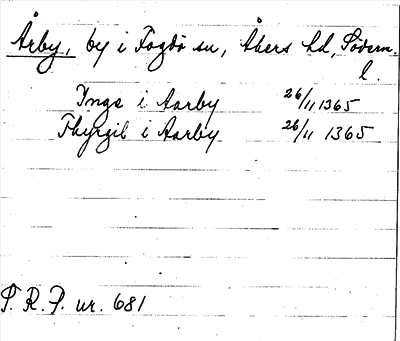 Årby, by i Fogdö sn, Åkers hd, Söderm.
l.
Inge i Aarby 26/11 1365
Thyrgil i Aarby 26/11 1365
S. R. P. nr. 681